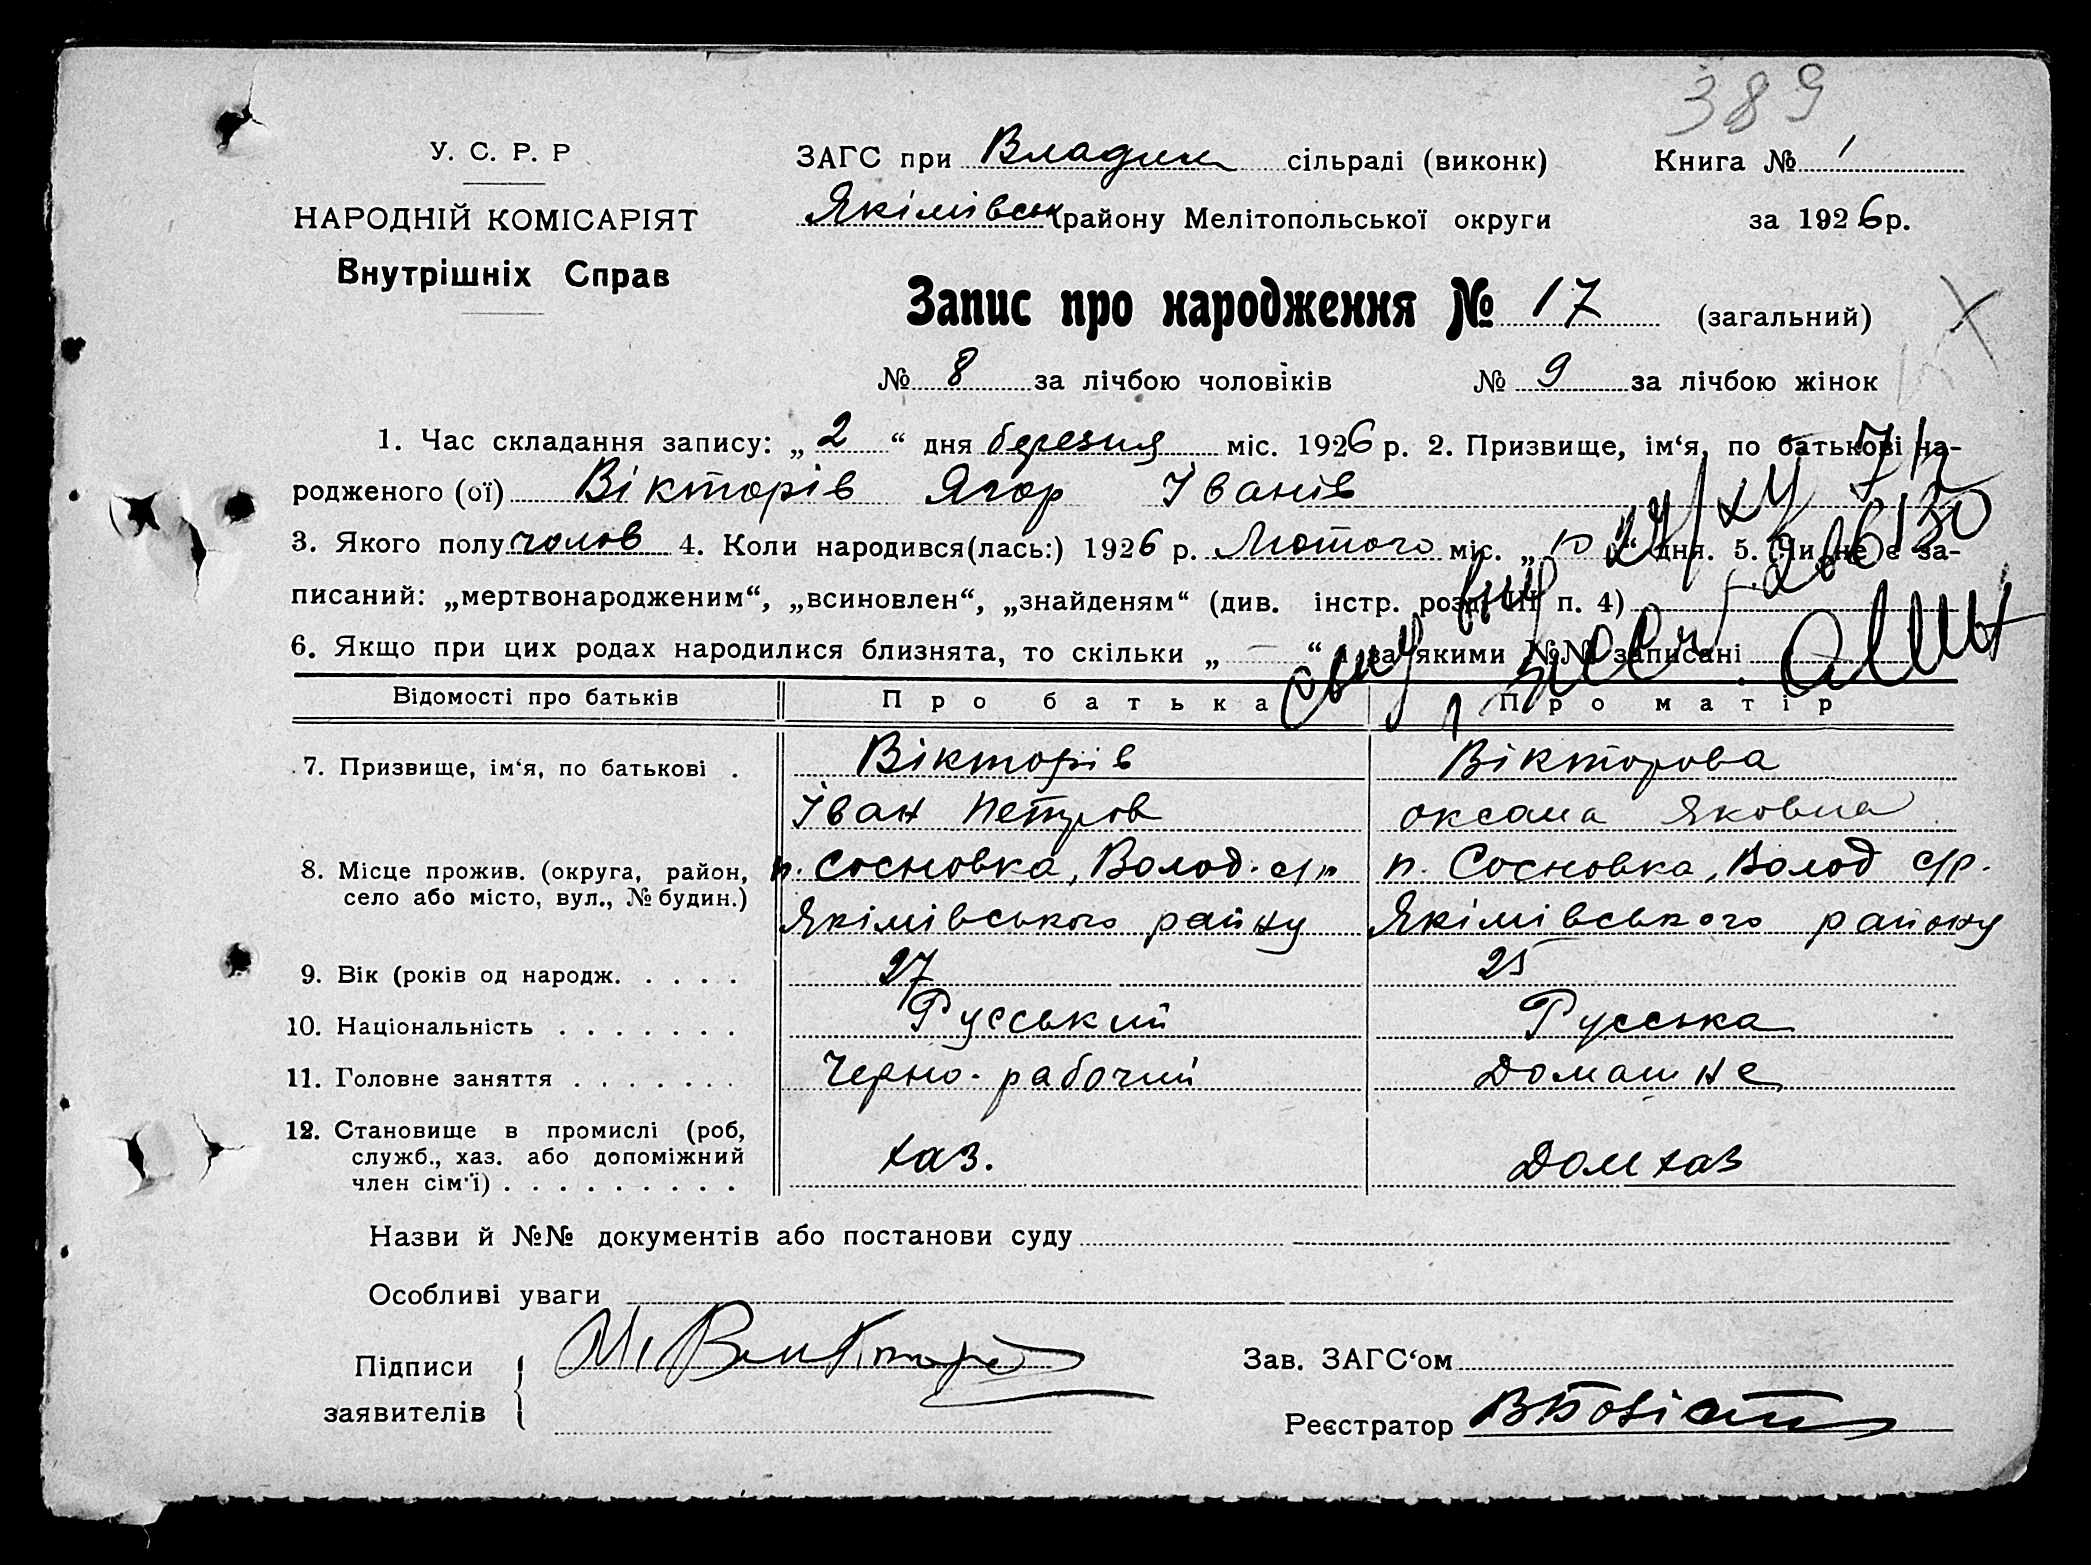 389
У. С. Р. Р
НАРОДНІЙ КОМІСАРІЯТ
Внутрішніх Справ
ЗАГС при сільраді (виконк) Книга № 1
Якімівськ району Мелітопольської округи за 1926 р.
Запис про народження № 17 (загальний)
№ 8 за лічбою чоловіків № 9 за лічбою жінок
1. Час складання запису: „ 2 “ дня березня міс. 1926 р. 2. Призвище, ім‘я, по батькові на-
родженого (ої) Вікторів Ягор Іванів
3. Якого полу чолов 4. Коли народився(лась:) 1926 р. Лютого міс. „ 10 “ дня. 5. Чи не є за-
писаний: „мертвонародженим“, „всиновлен“, „знайденям“ (див. інстр. розд. III п. 4)
6. Якщо при цих родах народилися близнята, то скільки „ — “ за якими №№ записані
Відомості про батьків Про батька Про матір
7. Призвище, ім‘я, по батькові . Вікторів Вікторова
Іван Петров оксана Яковна
8. Місце прожив. (округа, район, п. Сосновка, Волод. с/р п. Сосновка, Волод с/р.
село або місто, вул., № будин.) Якімівського району Якімівського району
9. Вік (років од народж. . . . . 27 25
10. Національність . . . . . . . Русський Русська
11. Головне заняття . . . . . . . Черно-рабочий Домашнє
12. Становище в промислі (роб,
служб., хаз. або допоміжний хаз. Домхаз
член сім‘ї) . . . . . . . . .
Назви й №№ документів або постанови суду
Особливі уваги
Підписи Зав. ЗАГС‘ом
заявителів Реєстратор